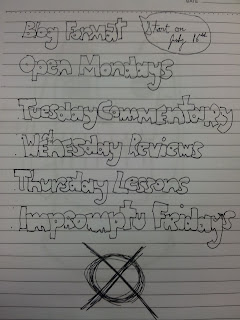 Blog Format
Start on
July 16th
Open Mondays
Tuesday Commentary
Wednesday Reviews
Thursday Lessons
Impromptu Fridays